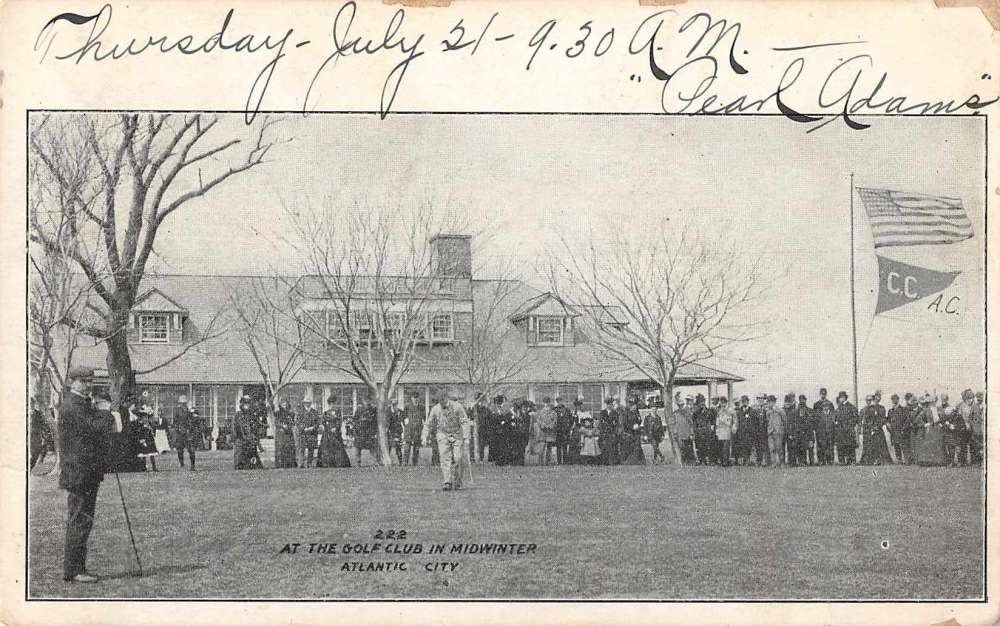 Thursday - July 21 - 9.30 A.M. —
"Pearl Adams".
C.C.
A.C.
222
AT THE GOLF CLUB IN MIDWINTER
ATLANTIC CITY